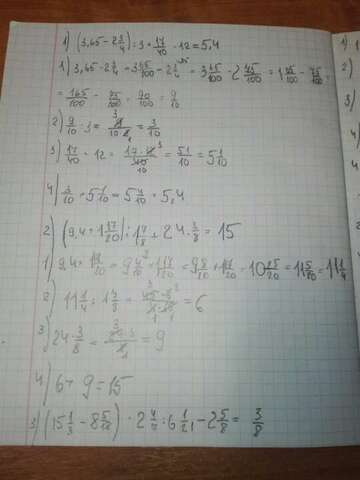 1) (3,65 - 2 3/4) : 3 + 17/40 · 12 = 5,4
1) 3,65 - 2 3/4 = 3 65/100 - 2 3/4 = 3 65/100 - 2 75/100 = 1 75/100
= 165/100 - 75/100 = 90/100 = 9/10
2) 9/10 : 3 = = 3/10
3) 17/40 · 12 = = 51/10 = 5 1/10
4) 3/10 + 5 1/10 = 5 4/10 = 5,4
2) (9,4 + 1 17/20) : 1 7/8 + 24 · 3/8 = 15
1) 9,4 + 1 17/20 = 9 4/10 + 1 17/20 = 9 8/20 + 1 17/20 = 10 25/20 = 11 5/20 = 11 1/4
2) 11 1/4 : 1 7/8 = = 6
3) 24 · 3/8 = = 9
4) 6 + 9 = 15
3) (15 1/3 - 8 5/12) · 2 4/7 : 6 1/21 - 2 5/8 = 3/8